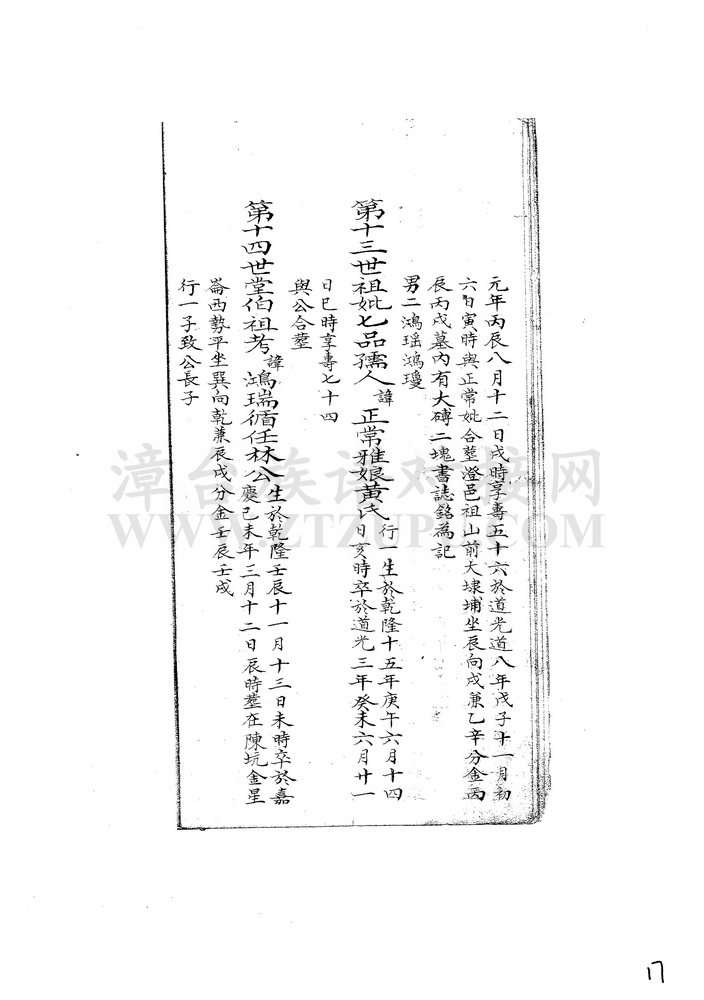 元年丙辰八月十二日戌時享壽五十六於道光八年戊子十一月初
六日寅時與正常妣合塟澄邑祖山前大埭埔坐辰向戌兼乙辛分金丙
辰丙戌墓內有大磚二塊書誌銘為記
男二鴻瑶鴻瓊
第十三世祖妣七品孺人諱正常雅娘黃氏行一生於乾隆十五年庚午六月十四
日亥時卒於道光三年癸未六月廿一
日巳時享壽七十四
與公合塟
第十四世堂伯祖考諱鴻瑞循任林公生於乾隆壬辰十一月十三日未時卒於嘉
慶己未年三月十二日辰時塟在陳坑金星
崙西勢平坐巽向乾兼辰戌分金壬辰壬戌
行一子致公長子
漳台族谱对接网
WWW.ZTZUPU.COM
17